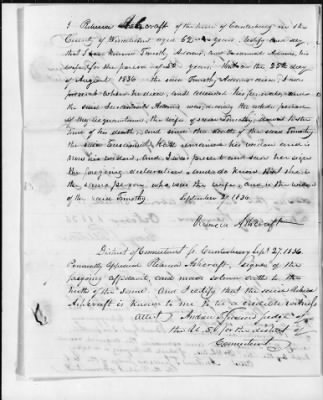 I Rebecca Ashcraft of the town of Canterbury in the
County of Windham aged 62 years, certify and say
that I have known Timothy Adams, and Susannah Adams, his
wife for the period of 50 years. That on the 25th day
of August 1836 the said Timothy Adams died, I was
present when he died, and attended his funeral, and
the said Susannah Adams was, during the whole period
of my acquaintance, the wife of said Timothy, down to the
time of his death, and since the death of the said Timothy
the said Susannah hath remained his widow and is
now his widow. And I was present and saw her sign
the foregoing declaration & and do know that she is
the same person, who was the wife, and is the widow
of the said Timothy September 27, 1836.
Rebecca Ashcraft
District of Connecticut ss. Canterbury Sept. 27, 1836
Personally appeared Rebecca Ashcraft, signer of the
foregoing affidavit, and made solemn oath to the
truth of the same. And I certify that the said Rebecca
Ashcraft is known to me to be a credible witness
attest Andrew T. Judson judge of
the U.S. D. for the district of
Connecticut